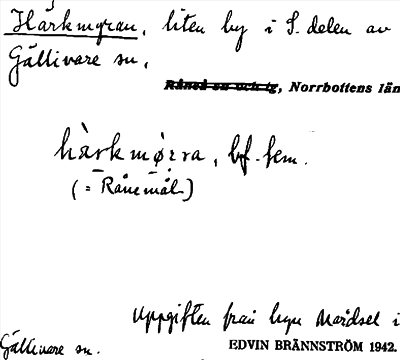 Härkmyran, liten by i S. delen av
Gällivare sn,
Råneå sn och tg, Norrbottens län
hà̀rkmø̀rra, bf. fem.
(= Rånemål)
Uppgiften från byn Nardsel i
Gällivare sn.
EDVIN BRÄNNSTRÖM 1942.